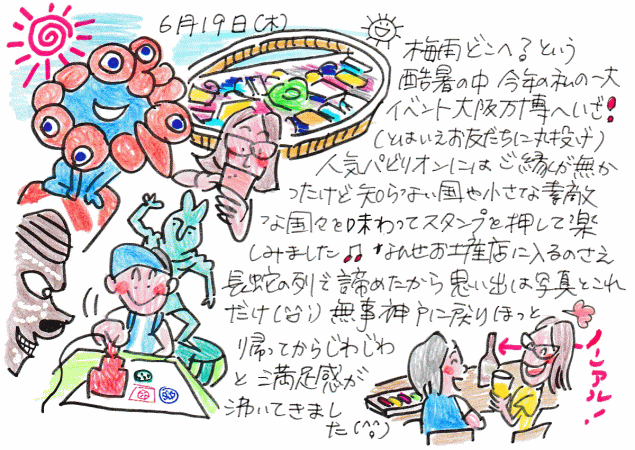 6月19日(木)
梅雨どこへ？という
酷暑の中 今年の私の一大
イベント大阪万博へいざ!
(とはいえお友だちに丸投げ)
人気パビリオンにはご縁が無か
ったけど知らない国や小さな素敵
な国々を味わってスタンプを押して楽
しみました♫ なんせお土産店に入るのさえ
長蛇の列で諦めたから思い出は写真とこれ
だけ(^^;) 無事神戸に戻りほっと
帰ってからじわじわ
と満足感が
沸いてきまし
た(^^)
ノンアル!